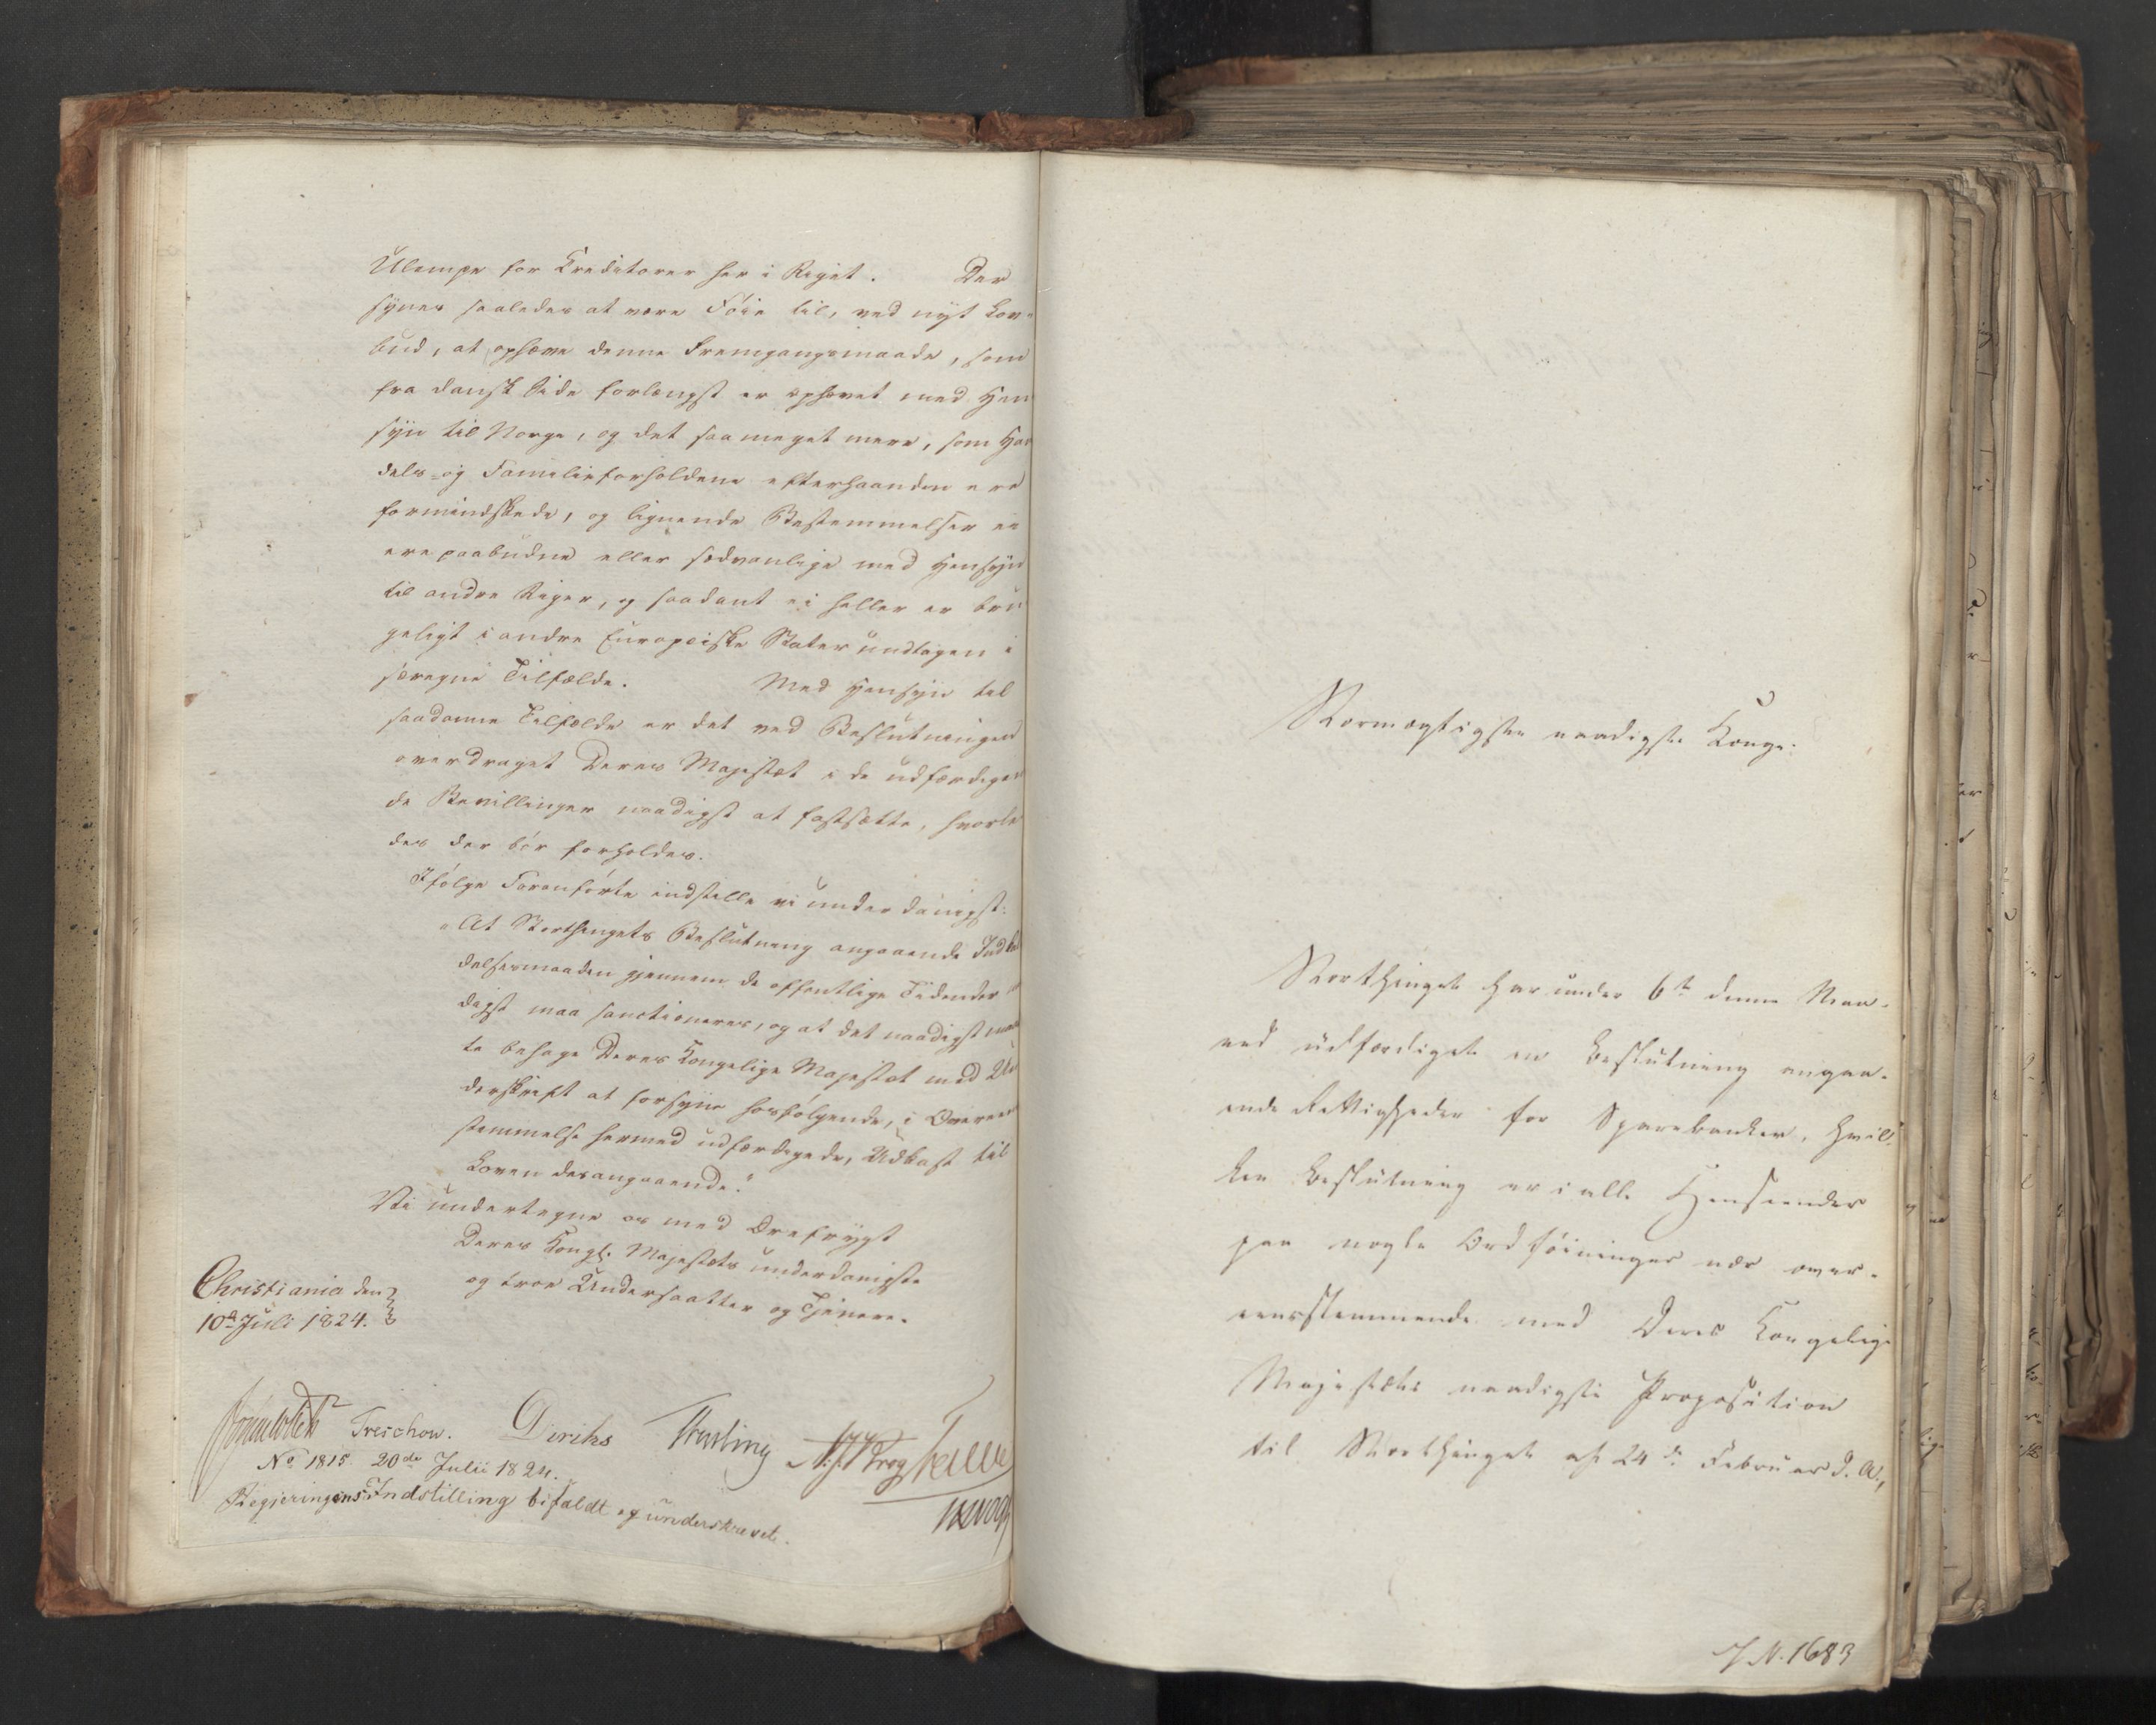 Ulempe for Creditorer her i Riget. Der
synes saaledes at være Föie til, ved nyt Lov-
bud, at ophæve denne Fremgangsmaade, som
fra dansk Side forlængst er ophævet med Hen
syn til Norge, og det saa meget mere, som Han
dels- og Familieforholdene efterhaanden ere
formindskede, og lignende Bestemmelser ei
ere paabudne eller sædvanlige med Hensyn
til andre Riger, og saadant ei heller er bru
geligt i andre Europeiske Stater undtagen i
særegne Tilfælde. Med Hensyn til
saadanne Tilfælde er det ved Beslutningen
overdraget Deres Majestæt i de udfærdigen
de Bevillinger naadigst at fastsætte, hvorle
des der bör forholdes.
Ifölge Foranförte indstille vi underdanigst:
"At Storthingets Beslutning angaaende Indkal
delsesmaaden gjennem de offentlige Tidender
digst maa sanctioneres, og at det naadigst maa
te behage Deres Kongelige Majestæt med Un
derskrift at forsyne hosfölgende, i Overeens
stemmelse hermed udfærdigede, Udkast til
Loven desangaaende."
Vi undertegne os med Ærefrygt
Deres Kongl. Majestæts underdanigste
og troe Undersaatter og Tjenere.
Christiania den
10de Juli 1824.
Treschow. Diriks N. J. Krog
No 1815. 20de Julii 1824.
Regjeringens Indstilling bifaldt og underskrevet.
Stormægtigste naadigste Konge.
Storthinget har under 6te denne Maa-
ned udfærdiget en Beslutning angaa-
ende Rettigheder for Sparebanker, hvil
ken Beslutning er i alle Henseender
paa nogle Ordföininger nær over-
eensstemmende med Deres Kongelige
Majestæts naadigste Proposition
til Storthinget af 24de Februar d. A.,
J. N. 1683